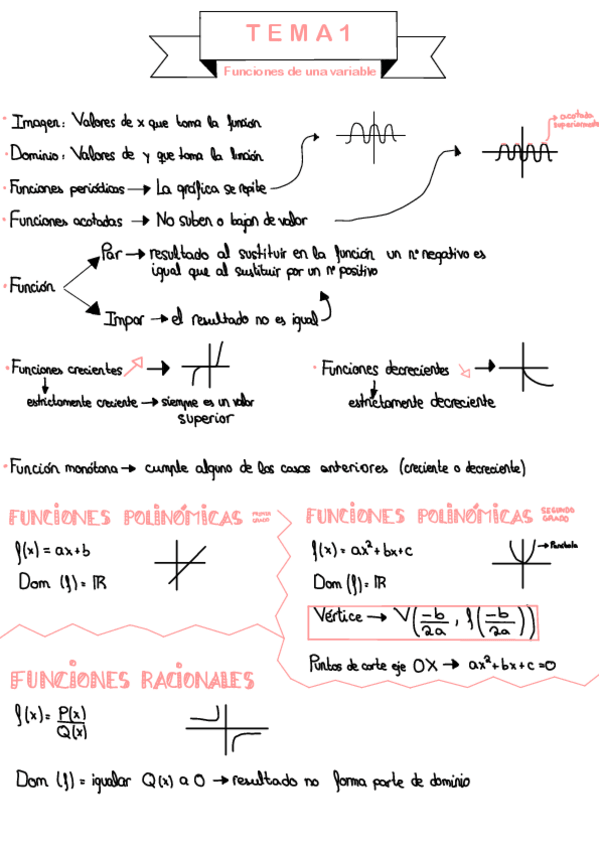 TEMA 1
Funciones de una variable
· Imagen: Valores de x que toma la función
· Dominio: Valores de y que toma la función
· Funciones periódicas → La gráfica se repite
· Funciones acotadas → No suben o bajan de valor
acotada
superiormente
Par → resultado al sustituir en la función un nº negativo es
igual que al sustituir por un nº positivo
· Función
Impar → el resultado no es igual
· Funciones crecientes ↗ →
estrictamente creciente → siempre es un valor
superior
· Funciones decrecientes ↘ →
estrictamente decreciente
· Función monótona → cumple alguno de los casos anteriores (creciente o decreciente)
FUNCIONES POLINÓMICAS PRIMER
GRADO
f(x) = ax+b
Dom (f) = ℝ
FUNCIONES POLINÓMICAS SEGUNDO
GRADO
f(x) = ax²+bx+c
→ Parábola
Dom (f) = ℝ
Vértice → V(-b/2a , f(-b/2a))
Puntos de corte eje OX → ax²+bx+c=0
FUNCIONES RACIONALES
f(x) = P(x)/Q(x)
Dom (f) = igualar Q(x) a 0 → resultado no forma parte de dominio